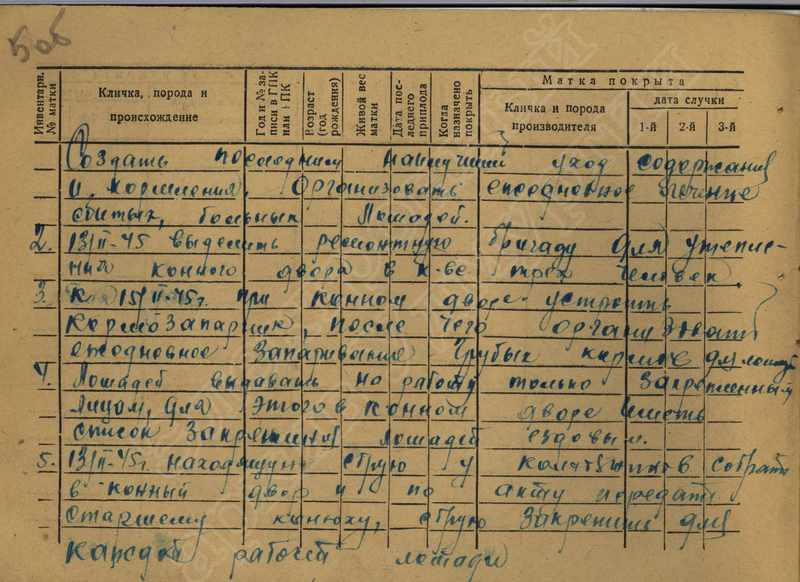 50б
Инвентарн. № матки
Кличка, порода и происхождение
Год и № записи в ГПК или ПК
Возраст (год рождения)
Живой вес матки
Дата последнего приплода
Когда назначено покрыть
Матка покрыта
Кличка и порода производителя
дата случки
1-й 2-й 3-й
Создать последним наилучший уход содержания
и кормления. Организовать ежедневное лечение
сбитых, больных Лошадей.
2. 13/II-45 выделить ремонтную бригаду для утепле-
ния конного двора в к-ве трех человек.
3. К 15/II-45г. при конном дворе устроить
Кормозапарник, после чего организовать
ежедневное Запаривание Грубых кормов для лошадей
4. Лошадей выдавать на работу только Закрепленным
Лицам, для этого в конном дворе Иметь
список Закрепления лошадей ездовым.
5. 13/II-45г. находящую сбрую у колхозников собрать
в конный двор и по акту передать
старшему конюху, сбрую Закрепить для
каждой рабочей лошади